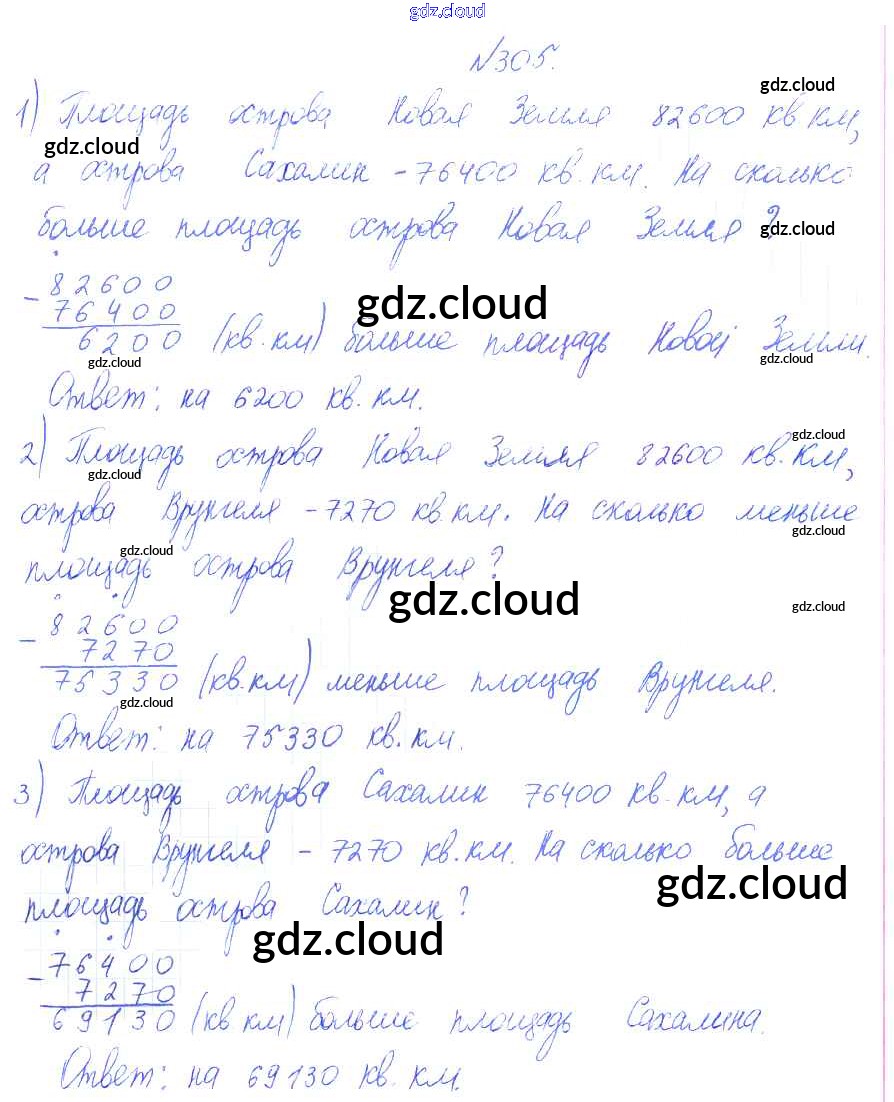 gdz.cloud
№305.
gdz.cloud
1) Площадь острова Новая Земля 82600 кв км,
gdz.cloud
а острова Сахалин - 76400 кв. км. На сколько
больше площадь острова Новая Земля?
gdz.cloud
- 82600
76400
6200 (кв. км) больше площадь Новой Земли.
gdz.cloud
gdz.cloud
gdz.cloud
Ответ: на 6200 кв. км.
gdz.cloud
2) Площадь острова Новая Земля 82600 кв. км,
gdz.cloud
острова Врунгеля - 7270 кв. км. На сколько меньше
gdz.cloud
gdz.cloud
площадь острова Врунгеля?
gdz.cloud
gdz.cloud
- 82600
7270
75330 (кв. км) меньше площадь Врунгеля.
gdz.cloud
Ответ: на 75330 кв. км.
3) Площадь острова Сахалин 76400 кв. км, а
острова Врунгеля - 7270 кв. км. На сколько больше
gdz.cloud
площадь острова Сахалин?
gdz.cloud
- 76400
7270
69130 (кв км) больше площадь Сахалина.
Ответ: на 69130 кв. км.